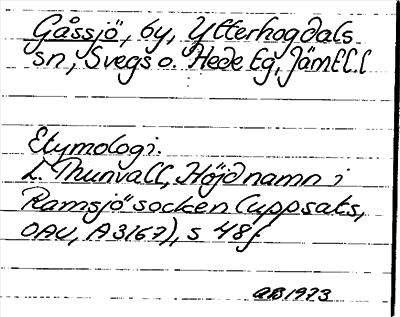 Gåssjö, by, Ytterhogdals
sn, Svegs o. Hede tg, Jämtl.l
Etymologi.
L. Thunvall, Höjdnamn i
Ramsjö socken (uppsats,
OAU, A3167), s 48f
AB 1973